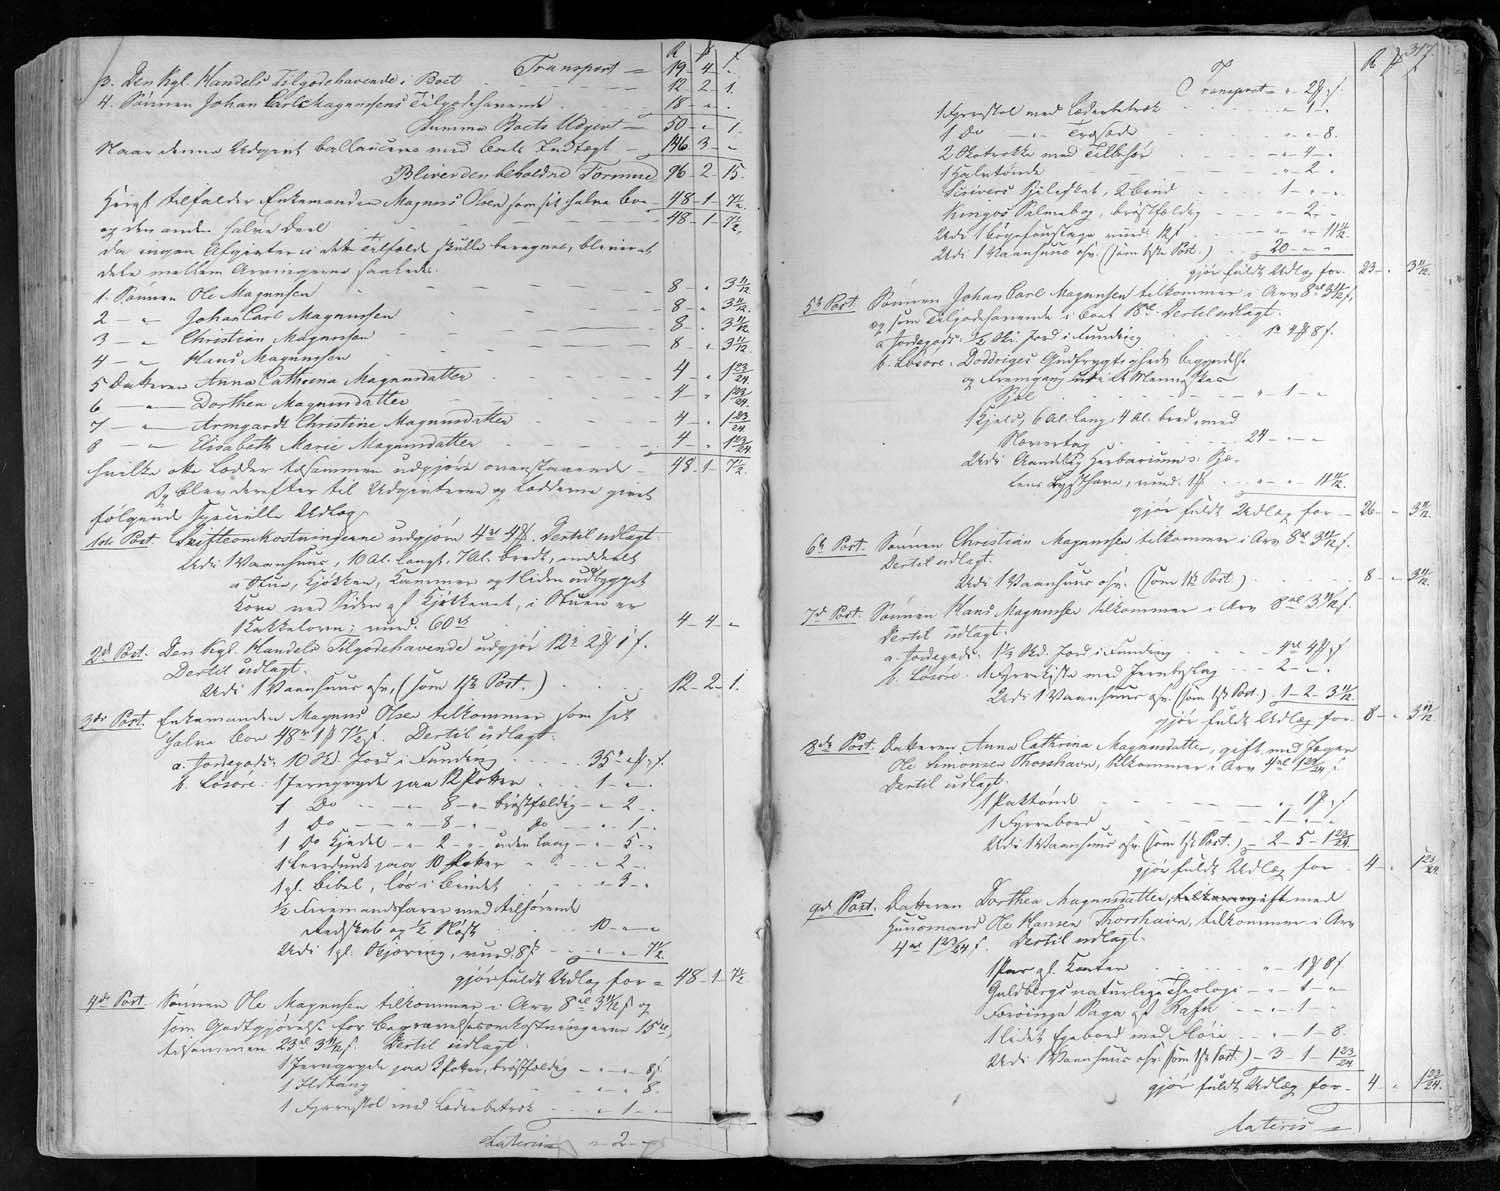 R ß f
Transport = 19 - 4 - "
3. Den kgl. Handels Tilgodehavende i Boet 12 - 2 - 1.
4. Sønnen Johan Carl Magnussens Tilgodehavende 18 - " -
Summa Boets Udgivt 50 - " 1.
Naar denne Udgivt ballancerer med Boets Indtægt 146 3 - "
Bliver den beholdne Formue 96 - 2 - 15.
Heraf tilfalder Enkemanden Magnus Olsen som sit halve Boe 48 - 1 - 7½
og den anden halve Deel 48 - 1 - 7½,
da ingen Afgivter i dette Tilfælde skulle beregnes, blev
delt mellem Arvingerne saaledes:
1. Sønnen Ole Magnussen 8 - " 3 11/12.
2 - " Johan Carl Magnussen 8 - " 3 11/12.
3 - " Christian Magnussen 8 - " 3 11/12.
4 - " Hans Magnussen 8 - " 3 11/12.
5 Datteren Anna Cathrina Magnusdatter 4 - " 1 23/24.
6 - " Dorthea Magnusdatter 4 - " 1 23/24.
7 - " Armgardt Christine Magnusdatter 4 - " 1 23/24.
8 - " Elisabeth Marie Magnusdatter 4 - " 1 23/24.
hvilke otte Lodder tilsammen udgjøre ovenstaaende 48 - 1 - 7½.
Og blev derefter til Udgivterne og Lodderne gjort
følgende specielle Udlæg
1ste Post. Skifteomkostningerne udgjøre 4 rd 4 ß. Dertil udlagt
Udi 1 Vaanhuus, 10 Al. langt, 7 Al. bredt, inddeelt
i Stue, Kjøkken, Kammer og 1 liden udbygget
Kove ved Siden af Kjøkkenet, i Stuen er
1 Kakkelovn; vurd. 60 rd 4 - 4 - "
2d Post. Den kgl. Handels Tilgodehavende udgjør 12 rd 2 ß 1 f.
Dertil udlagt.
Udi 1 Vaanhuus osv. (som 1ste Post.) 12 - 2 - 1.
3die Post. Enkemanden Magnus Olsen tilkommer som sit
halve Boe 48 rd 1 ß 7½ f. Dertil udlagt.
a. Jordegods: 10 Skd. Jord i Funding 35 rd " ß " f.
b. Løsøre: 1 Jerngryde paa 12 Potter " - 1 - "
1 Do - " - 8 - " brøstfældig - " 2 - "
1 Do - " - 8 - " do - " - 1 - "
1 Do Kjedel - " 2 - " uden Laag - " 5 - "
1 Leerdunk paa 10 Potter - " - 2 - "
1 gl. Bibel, løs i Bindet " - 3 - "
½ Firemandsfarer med tilhørende
Redskab og ½ Nøst 10 - " - "
Udi 1 gl. Hjøring, vurd. 8 ß - " - " 7½.
gjør fuldt Udlæg for = 48 - 1 - 7½
4de Post. Sønnen Ole Magnussen tilkommer i Arv 8 rd 3 11/12 f og
som Godtgjørelse for Begravelsesomkostningerne 15 rd,
tilsammen 23 rd 3 11/12 f. Dertil udlagt.
1 Jerngryde paa 3 Potter, brøstfældig - " - " 8 f.
1 Ildtang - " - " 8.
1 Fyrrestol med Læderbetræk - " 1 - "
Lateris " - 2 - "
317.
R ß f
Transport = " - 2 ß " f.
1 Fyrrestol med Læderbetræk " - 1 - "
1 Do - " - Træsæde " - " 8.
2 Okstrokke med Tilbehør " - 4 - "
1 Halvtønde " - 2 - "
Scrivers Sjeleskat, 2 Bind 1 - " - "
Kingos Salmebog, brøstfældig " - 2 - "
- " 11 11/12.
Udi 1 Vaanhuus osv. (som 1ste Post.) 20 - " - "
gjør fuldt Udlæg for - 23 - " 3 11/12.
5te Post. Sønnen Johan Carl Magnussen tilkommer i Arv 8 rd 3 11/12 f.
og som Tilgodehavende i Boet 18 rd. Dertil udlagt.
a Jordegods: ½ Skd. Jord i Funding 1 rd 4 ß 8 f.
b. Løsøre. Doddriges Gudfrygtigheds Begyndelse
og Fremgang udi et Menneskes
Sjæl " - 1 - "
1 Hjeld, 6 Al. lang, 4 Al. bred, med
Nævertag 24 - " - "
Udi Aandelig Herbarium o: Sjæ-
lens Lysthave, vurd. 1 ß - " - " 11 11/12.
gjør fuldt Udlæg for - 26 - " 3 11/12.
6te Post. Sønnen Christian Magnussen tilkommer i Arv 8 rd 3 11/12 f.
Dertil udlagt.
Udi 1 Vaanhuus osv. (som 1ste Post.) 8 - " 3 11/12.
7de Post. Sønnen Hans Magnussen tilkommer i Arv 8 rd 3 11/12 f.
Dertil udlagt.
a. Jordegods: 1½ Skd. Jord i Funding 4 rd 4 ß " f
b. Løsøre. 1 Fyrrekiste med Jernbeslag 2 - " - "
Udi 1 Vaanhuus osv. (som 1ste Post.) 1 - 2 - 3 11/12.
gjør fuldt Udlæg for - 8 - " 3 11/12
8de Post. Datteren Anna Cathrina Magnusdatter, gift med Jæger
Ole Simonsen Thorshavn, tilkommer i Arv 4 rd 1 23/24 f.
Dertil udlagt.
1 Saltønde " - 1 ß " f
1 Fyrrebord - 1 - "
Udi 1 Vaanhuus osv. (som 1ste Post.) - 2 - 5 - 1 23/24.
gjør fuldt Udlæg for 4 - " 1 23/24.
9de Post. Datteren Dorthea Magnusdatter, gift med
Huusmand Ole Hansen Thorshavn, tilkommer i Arv
4 rd 1 23/24 f. Dertil udlagt.
1 Par gl. Karter " - 1 ß 8 f
Guldbergs naturlige Theologi - " 1 - "
Færøinga Saga af Rafn - " - 1 - "
1 lidet Egebord med Fløie - " 1 - 8.
Udi 1 Vaanhuus osv. (som 1ste Post.) - 3 - 1 - 1 23/24
gjør fuldt Udlæg for - 4 - " 1 23/24.
Lateris =